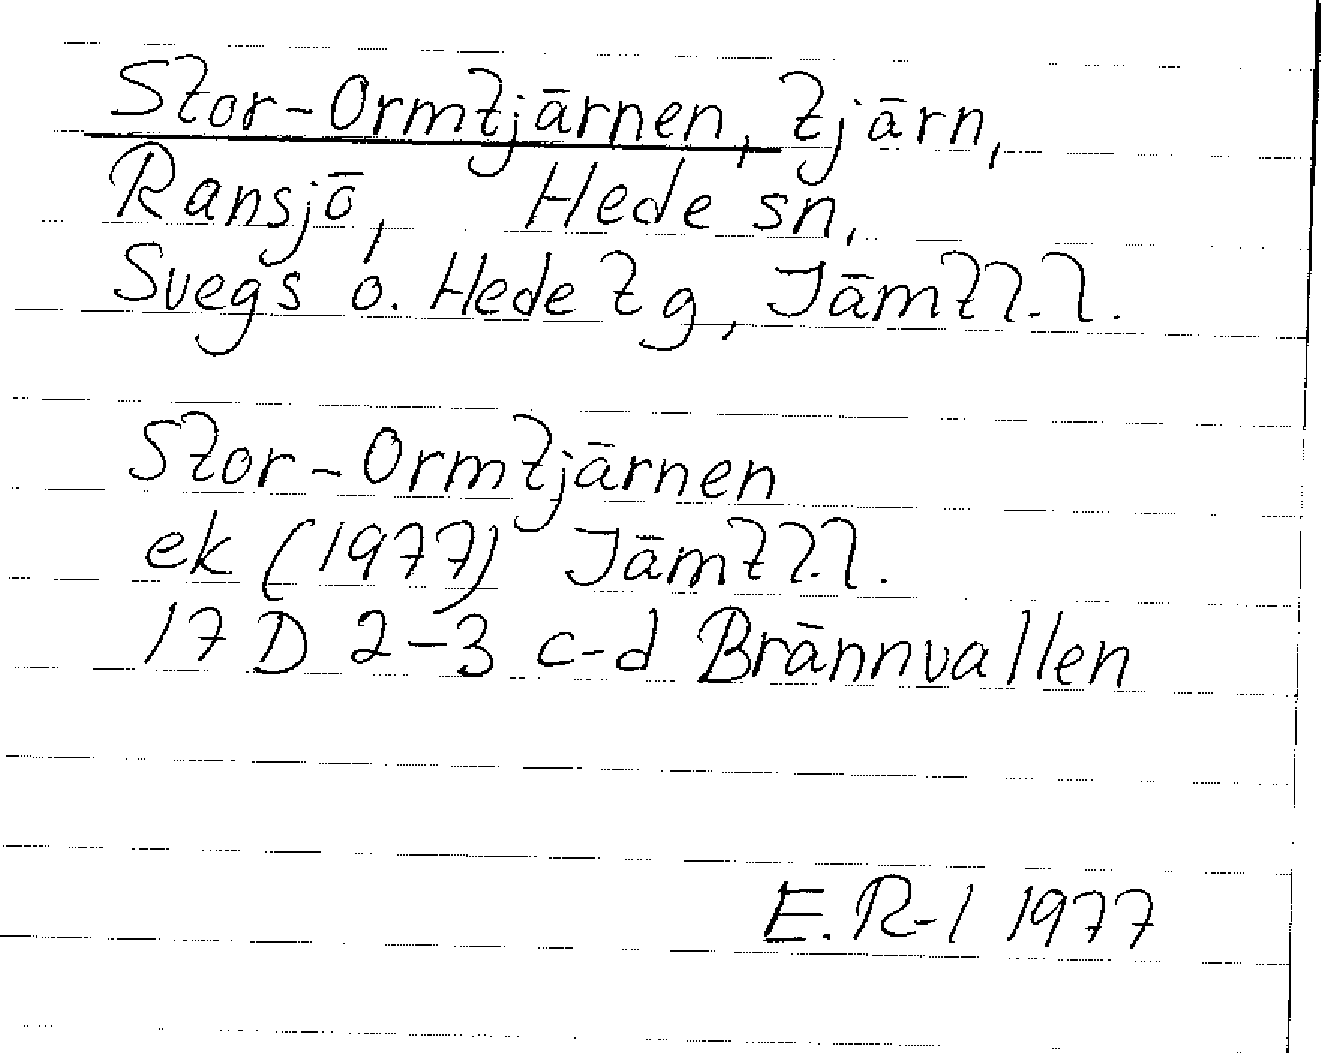 Stor-Ormtjärnen, tjärn,
Ransjö, Hede sn,
Svegs o. Hede tg, Jämtl.l.
Stor-Ormtjärnen
ek (1977) Jämtl.l.
17 D 2-3 c-d Brännvallen
E.R-l 1977